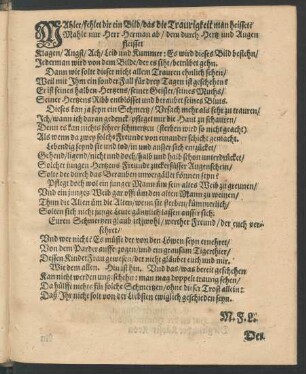 MAhler/ fehlet dir ein Bild/ das die Traurigkeit man heisset?
Mahle nur Herr Herman ab/ dem durch Hertz und Augen
fleisset
Klagen/ Angst/ Ach/ Leid und Kummer: Es wird dieses Bild bestehn/
Jederman wird von dem Bilde/ der es sihe/ betrübet gehn.
Dann wie solte dieser nicht allem Trauren ähnlich sehen/
Weil mit Ihm ein sonder Fall disen Tages ist geschehen:
Er ist seines halben Hertzens/ seiner Geister/ seines Muths/
Seiner Hertzens Ribb entblösset und beraubt seines Bluts.
Dieses kan ja seyn ein Schmertz/ Nichts mehr als sehr zu trauren/
Ich/ wann ich daran gedenck/ pfleget mir die Haut zu schauren/
Denn es kan nichts sehrer schmertzen (sterben wird so nicht geacht)
Als wenn da zwey solche Freunde von einander schicht gemacht.
Lebendig seynd sie tod und/ in und ausser sich entzücket/
Gehend/ ligend/ nicht und doch/ halb und halb schon unterdrücket/
Solcher jungen Hertzens Freunde zweiffelsüsser Augenschein/
Solte der durch das Berauben unvergället können seyn?
Pflegt doch wol ein junger Mann üm sein altes Weib zu greinen/
Und ein junges Weib gar offt üm den alten Mann zu weinen/
Thun die Alten üm die Alten/ wenn sie sterben/ kümmerlich/
Solten sich nicht junge Leute gäntzlich lassen ausser sich.
Euren Schmertzen glaub ich wol/ werther Freund/ der euch verseh-
ret/
Und wer nicht? Es müste der von den Löwen seyn ernehret/
Von dem Parder aufferzogen/ und ein grausam Tigerthier/
Dessen Kindes Frau gewesen/ der nicht glaubet euch und mir.
Wie dem allen. Hin ist hin. Und das/ was bereit geschehen
Kan nicht werden ungeschehn: man mag doppelt traurig sehen/
Da hilfft nichts für solche Schmertzen/ ohne dieser Trost allein:
Daß Ihr nicht solt von der Liebsten ewiglich geschieden seyn.
M. F. L.
Der